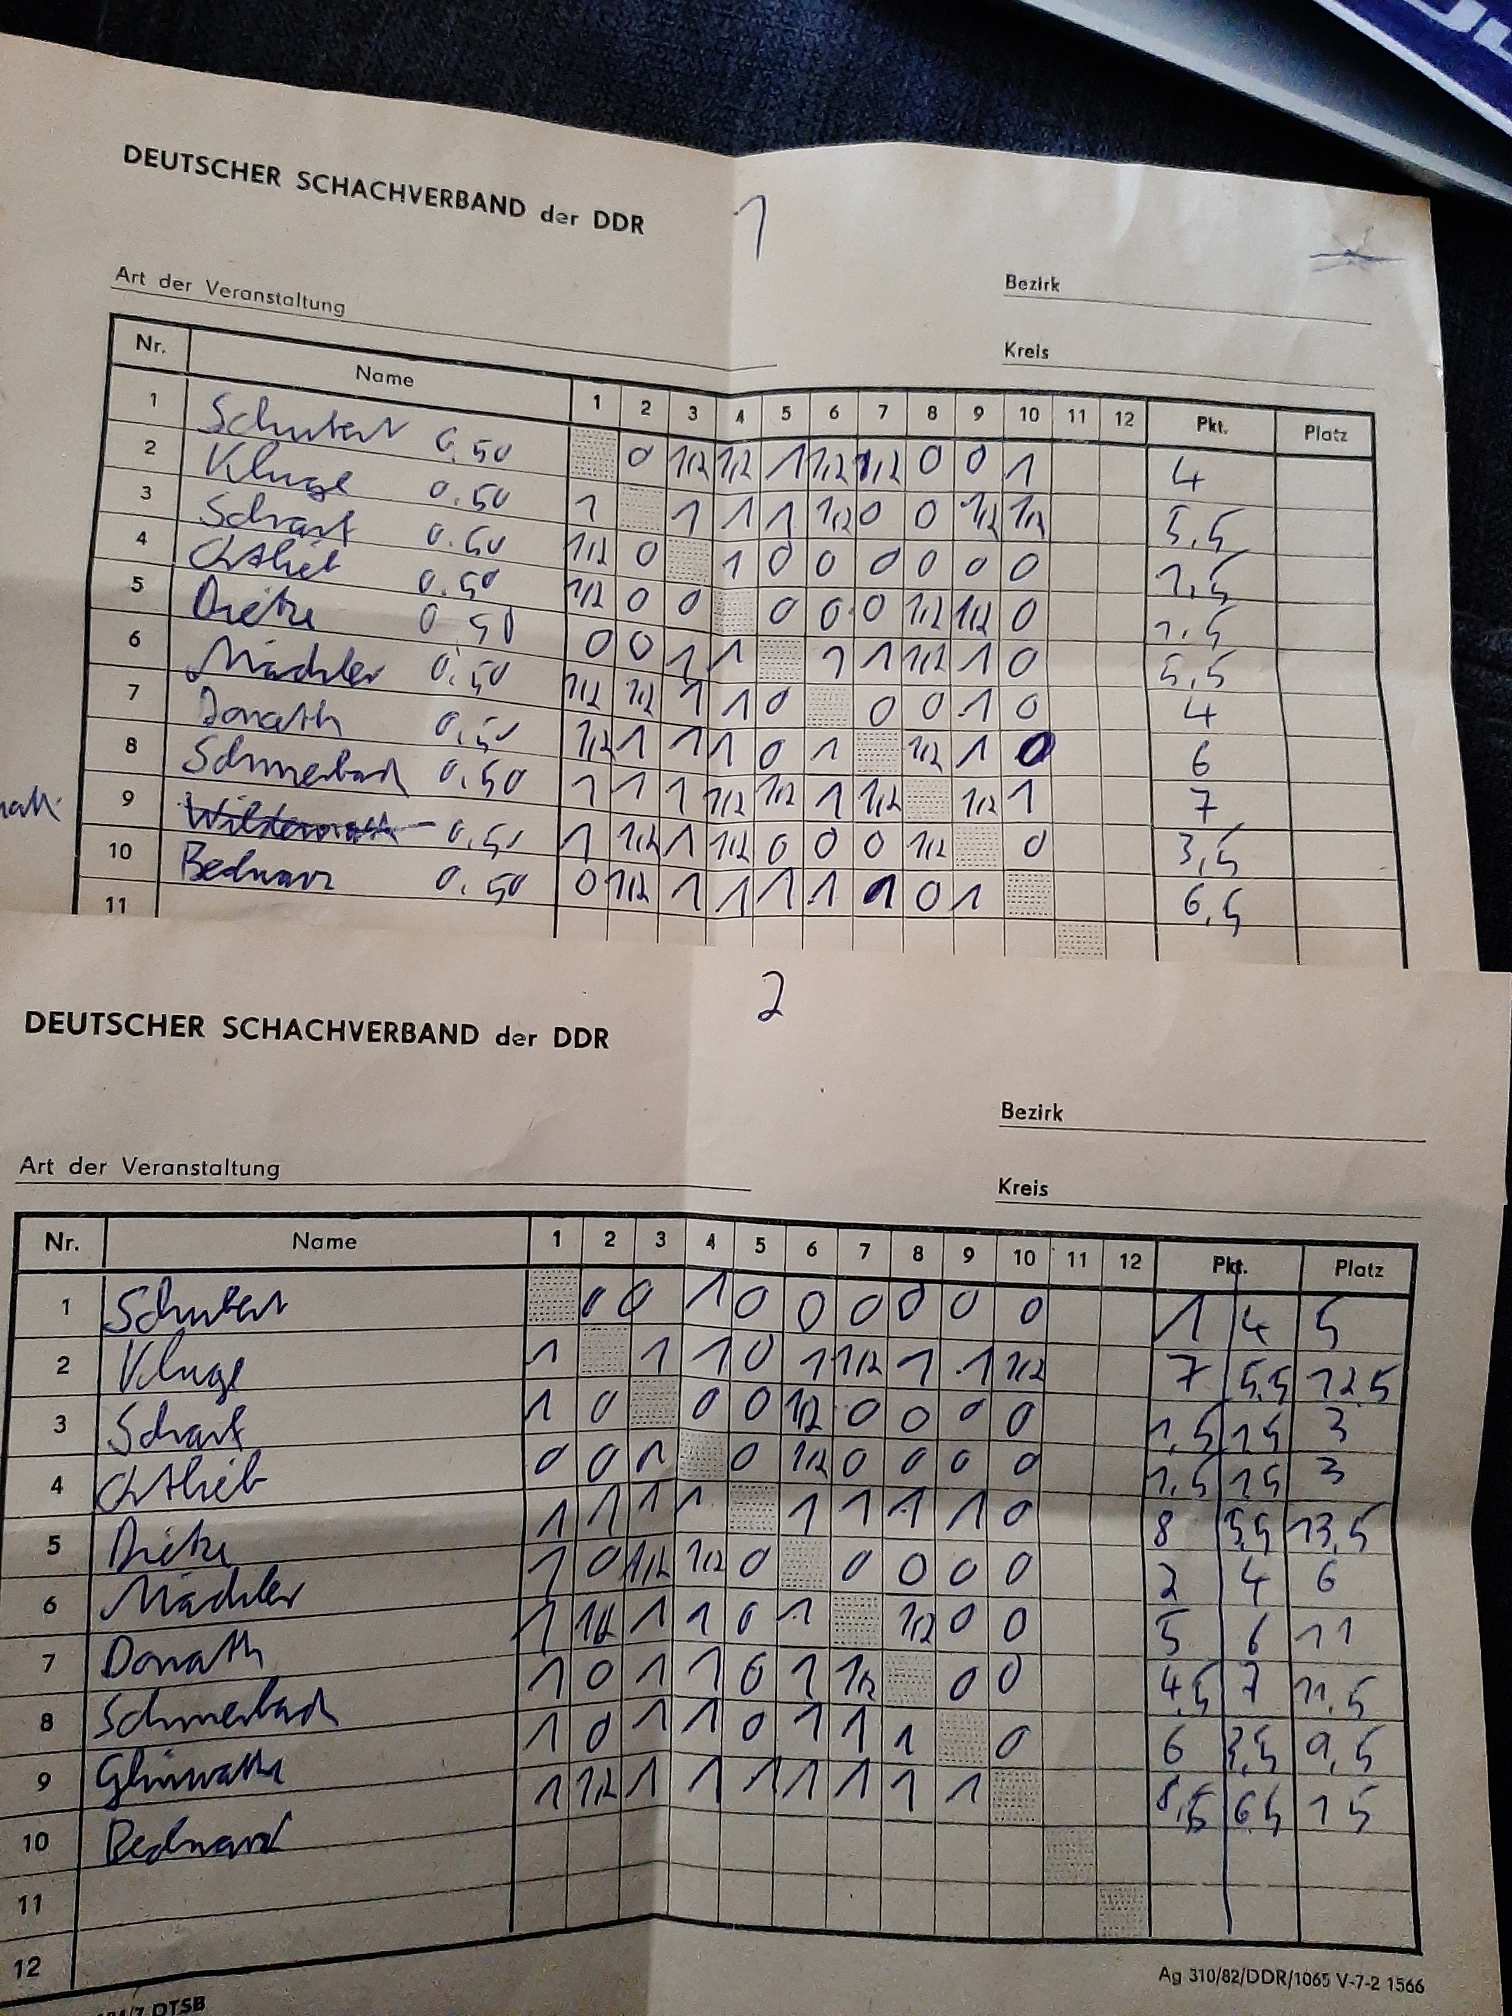 DEUTSCHER SCHACHVERBAND der DDR
1
Art der Veranstaltung
Bezirk
Kreis
Nr. Name 1 2 3 4 5 6 7 8 9 10 11 12 Pkt. Platz
1 Schubert 0.50 0 1/2 1/2 1 1/2 1/2 0 0 1 4
2 Kluge 0.50 1 1 1 1 1/2 0 0 1/2 1/2 5,5
3 Scharf 0.50 1/2 0 1 0 0 0 0 0 0 1,5
4 Ortlieb 0.50 1/2 0 0 0 0 0 1/2 1/2 0 1,5
5 Dietze 0.50 0 0 1 1 1 1 1/2 1 0 5,5
6 Mächler 0.50 1/2 1/2 1 1 0 0 0 1 0 4
7 Donath 0.50 1/2 1 1 1 0 1 1/2 1 0 6
8 Schmerbach 0.50 1 1 1 1/2 1/2 1 1/2 1/2 1 7
9 0.50 1 1/2 1 1/2 0 0 0 1/2 0 3,5
10 Bednarz 0.50 0 1/2 1 1 1 1 1 0 1 6,5
11
DEUTSCHER SCHACHVERBAND der DDR
2
Art der Veranstaltung
Bezirk
Kreis
Nr. Name 1 2 3 4 5 6 7 8 9 10 11 12 Pkt. Platz
1 Schubert 0 0 1 0 0 0 0 0 0 1 4 5
2 Kluge 1 1 1 0 1 1/2 1 1 1/2 7 5,5 12,5
3 Scharf 1 0 0 0 1/2 0 0 0 0 1,5 1,5 3
4 Ortlieb 0 0 1 0 1/2 0 0 0 0 1,5 1,5 3
5 Dietze 1 1 1 1 1 1 1 1 0 8 5,5 13,5
6 Mächler 1 0 1/2 1/2 0 0 0 0 0 2 4 6
7 Donath 1 1/2 1 1 0 1 1/2 0 0 5 6 11
8 Schmerbach 1 0 1 1 0 1 1/2 0 0 4,5 7 11,5
9 1 0 1 1 0 1 1 1 0 6 3,5 9,5
10 Bednarz 1 1/2 1 1 1 1 1 1 1 8,5 6,5 15
11
12
Ag 310/82/DDR/1065 V-7-2 1566
DTSB